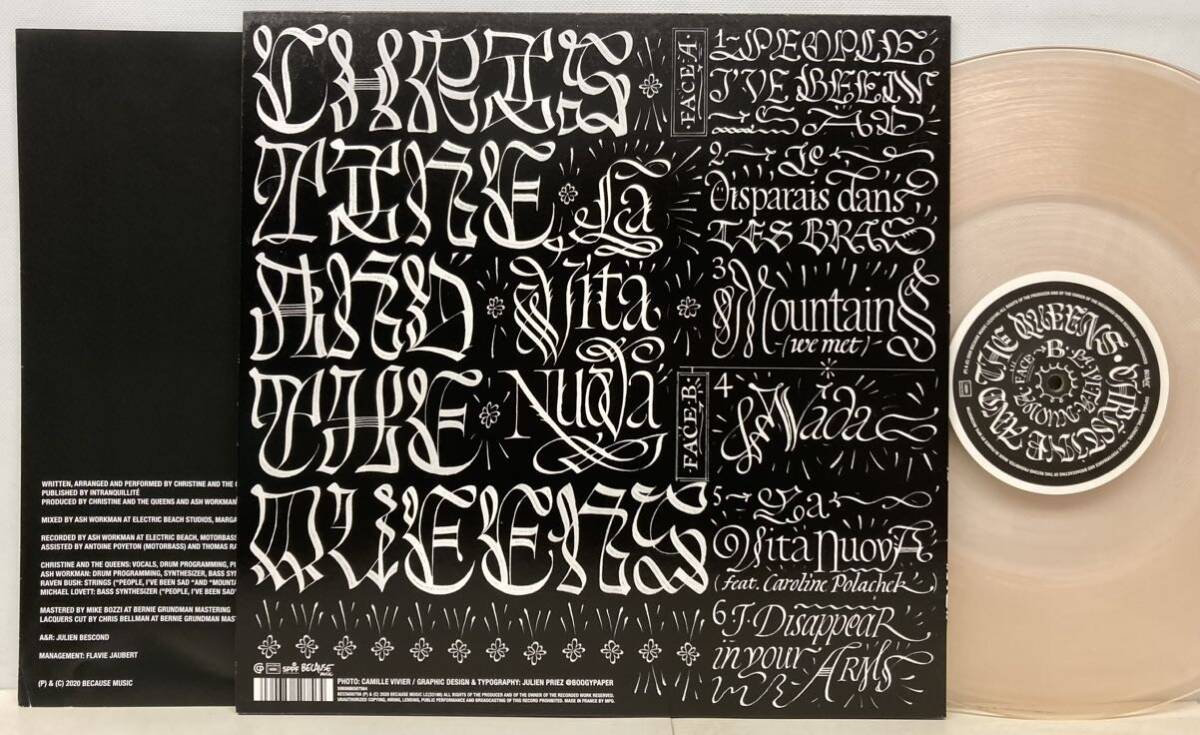 WRITTEN, ARRANGED AND PERFORMED BY CHRISTINE AND THE
PUBLISHED BY INTRANQUILLITÉ
PRODUCED BY CHRISTINE AND THE QUEENS AND ASH WORKMAN
MIXED BY ASH WORKMAN AT ELECTRIC BEACH STUDIOS,
RECORDED BY ASH WORKMAN AT ELECTRIC BEACH, MOTORBASS
ASSISTED BY ANTOINE POYETON (MOTORBASS) AND THOMAS
CHRISTINE AND THE QUEENS: VOCALS, DRUM PROGRAMMING,
ASH WORKMAN: DRUM PROGRAMMING, SYNTHESIZER, BASS
RAVEN BUSH: STRINGS ("PEOPLE, I'VE BEEN SAD "AND
MICHAEL LOVETT: BASS SYNTHESIZER ("PEOPLE, I'VE BEEN SAD"
MASTERED BY MIKE BOZZI AT BERNIE GRUNDMAN MASTERING
LACQUERS CUT BY CHRIS BELLMAN AT BERNIE GRUNDMAN
A&R: JULIEN BESCOND
MANAGEMENT: FLAVIE JAUBERT
(P) & (C) 2020 BECAUSE MUSIC
CHRIS
TINE
AND
THE
QUEENS
La
Vita
Nuova
·FACE A·
1- PEOPLE
I'VE BEEN
SAD
2- Je
Disparais dans
TES BRAS
3 Mountains
(we met)
·FACE B·
4 Nada
5- La
Vita Nuova
(feat. Caroline Polachek)
6 I Disappear
in your
ARMS
BECAUSE
PHOTO: CAMILLE VIVIER / GRAPHIC DESIGN & TYPOGRAPHY: JULIEN PRIEZ @BOOGYPAPER
(P) & (C) 2020 BECAUSE MUSIC ALL RIGHTS OF THE PRODUCER AND OF THE OWNER OF THE RECORDED WORK RESERVED.
UNAUTHORIZED COPYING, HIRING, LENDING, PUBLIC PERFORMANCE AND BROADCASTING OF THIS RECORD PROHIBITED. MADE IN FRANCE BY MPO.
CHRISTINE AND THE QUEENS
FACE
·B·
LA VITA NUOVA